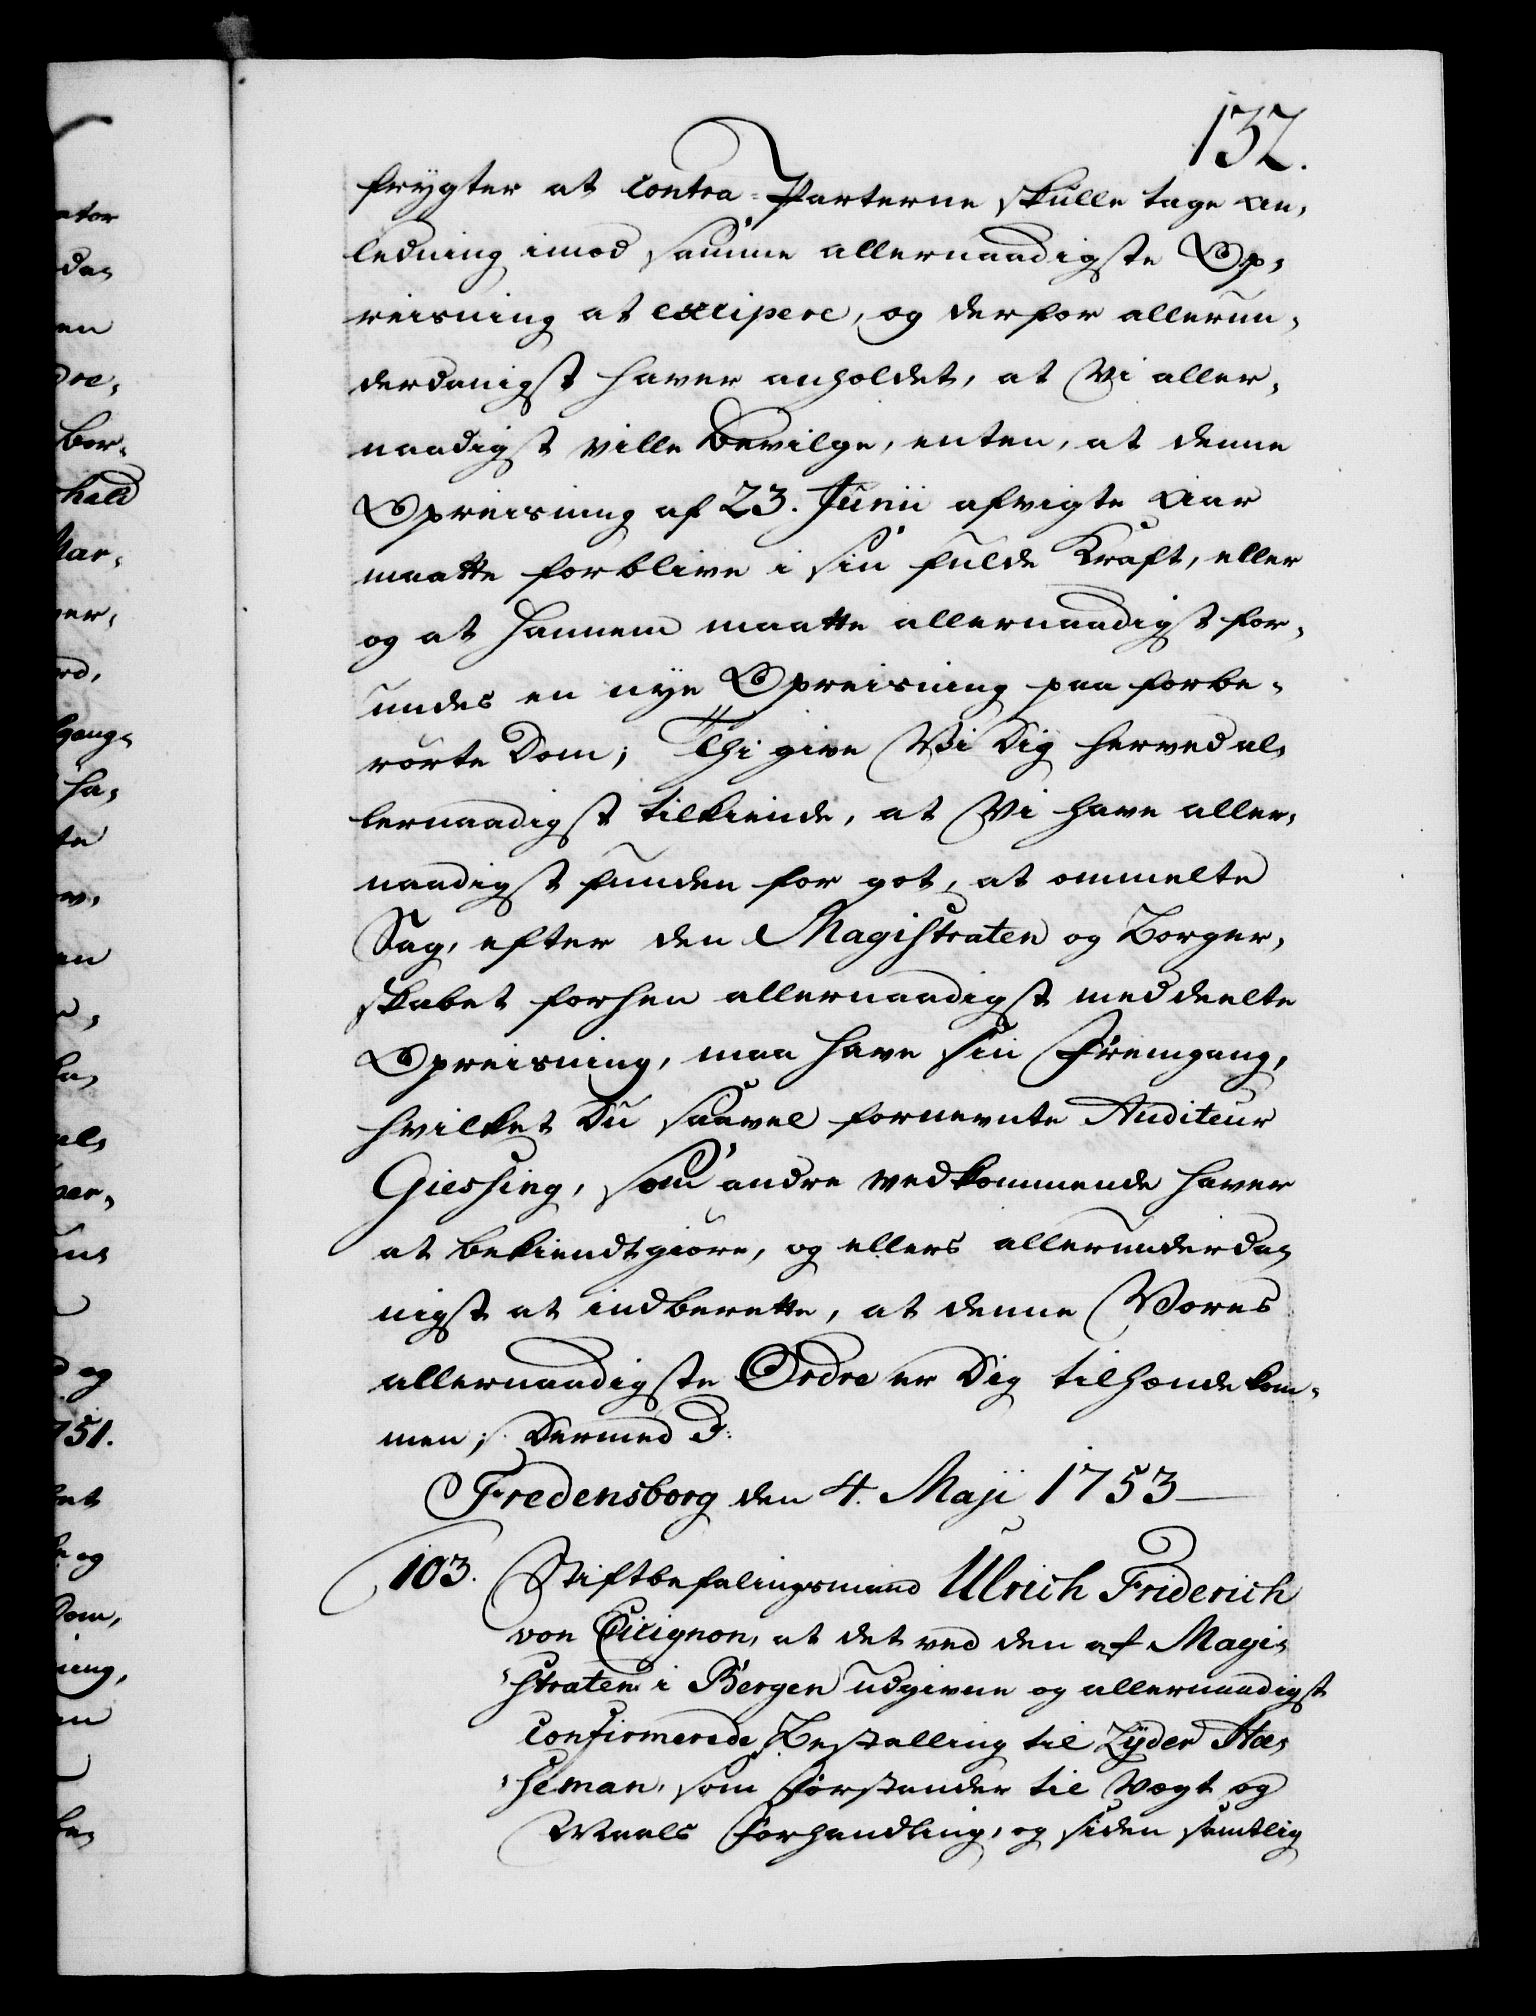 132.
frygter at Contra-Parterne skulle tage An-
ledning imod samme allernaadigste Op-
reisning at excipere, og derfor allerun-
derdanigst haver anholdet, at Vi aller-
naadigst ville bevilge, enten, at denne
Opreisning af 23. Junii afvigte Aar
maatte forblive i sin fulde Kraft, eller
og at hannem maatte allernaadigst for-
undes en nye Opreisning paa forbe-
rørte Dom; Thi give Vi Dig herved al-
lernaadigst tilkiende, at Vi have aller-
naadigst funden for got, at ommelte
Sag, efter den Magistraten og Borger-
skabet forhen allernaadigst meddeelte
Opreisning, maa have sin Fremgang,
hvilket Du saavel fornevnte Auditeur
Giessing, som andre vedkommende haver
at bekiendtgiøre, og ellers allerunderda-
nigst at indberette, at denne Vores
allernaadigste Ordre er Dig tilhænde kom-
men; Dermed
Fredensborg den 4. Maji 1753
103. Stiftbefalingsmand Ulrich Friderich
von Cicignon, at det ved den af Magi-
straten i Bergen udgivne og allernaadigst
confirmerede Bestalling til Lyder Ha-
seman, som Forstander til Vegt og
Maals Forhandling, og siden samtlig
ator
da-
en
dre-
ber-
hald
Mar-
ver-
gang-
ha-
te
en
al-
per-
og
751.
og
Dom,
ning,